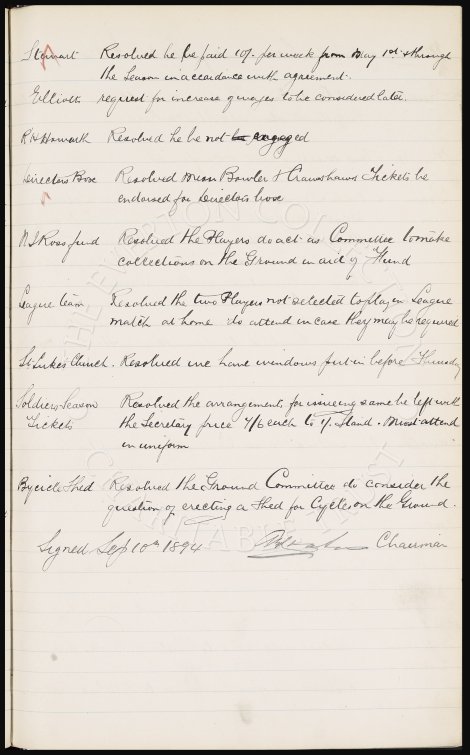 Stewart Resolved he be paid 10/- per week from May 1st & through
the Season in accordance with agreement.
Elliott request for increase of wages to be considered later.
R H Howarth Resolved he be not be engaged
Directors Box Resolved Messrs Bowler & Crawshaws Tickets be
endorsed for Directors box
N J Ross fund Resolved the Players do act as Committee to make
collections on the Ground in aid of Fund
League team Resolved the two Players not selected to play in League
match at home do attend in case they may be required
St Lukes Church. Resolved we have windows put in before Thursday
Soldiers Season Resolved the arrangements for issuing same be left with
Tickets the Secretary price 7/6 each to 1/- Stand. Must attend
in uniform
Bycicle Shed Resolved the Ground Committee do consider the
question of erecting a Shed for Cycles on the Ground.
Signed Sep 10th 1894 Chairman
THE EVERTON COLLECTION
CHARITABLE TRUST